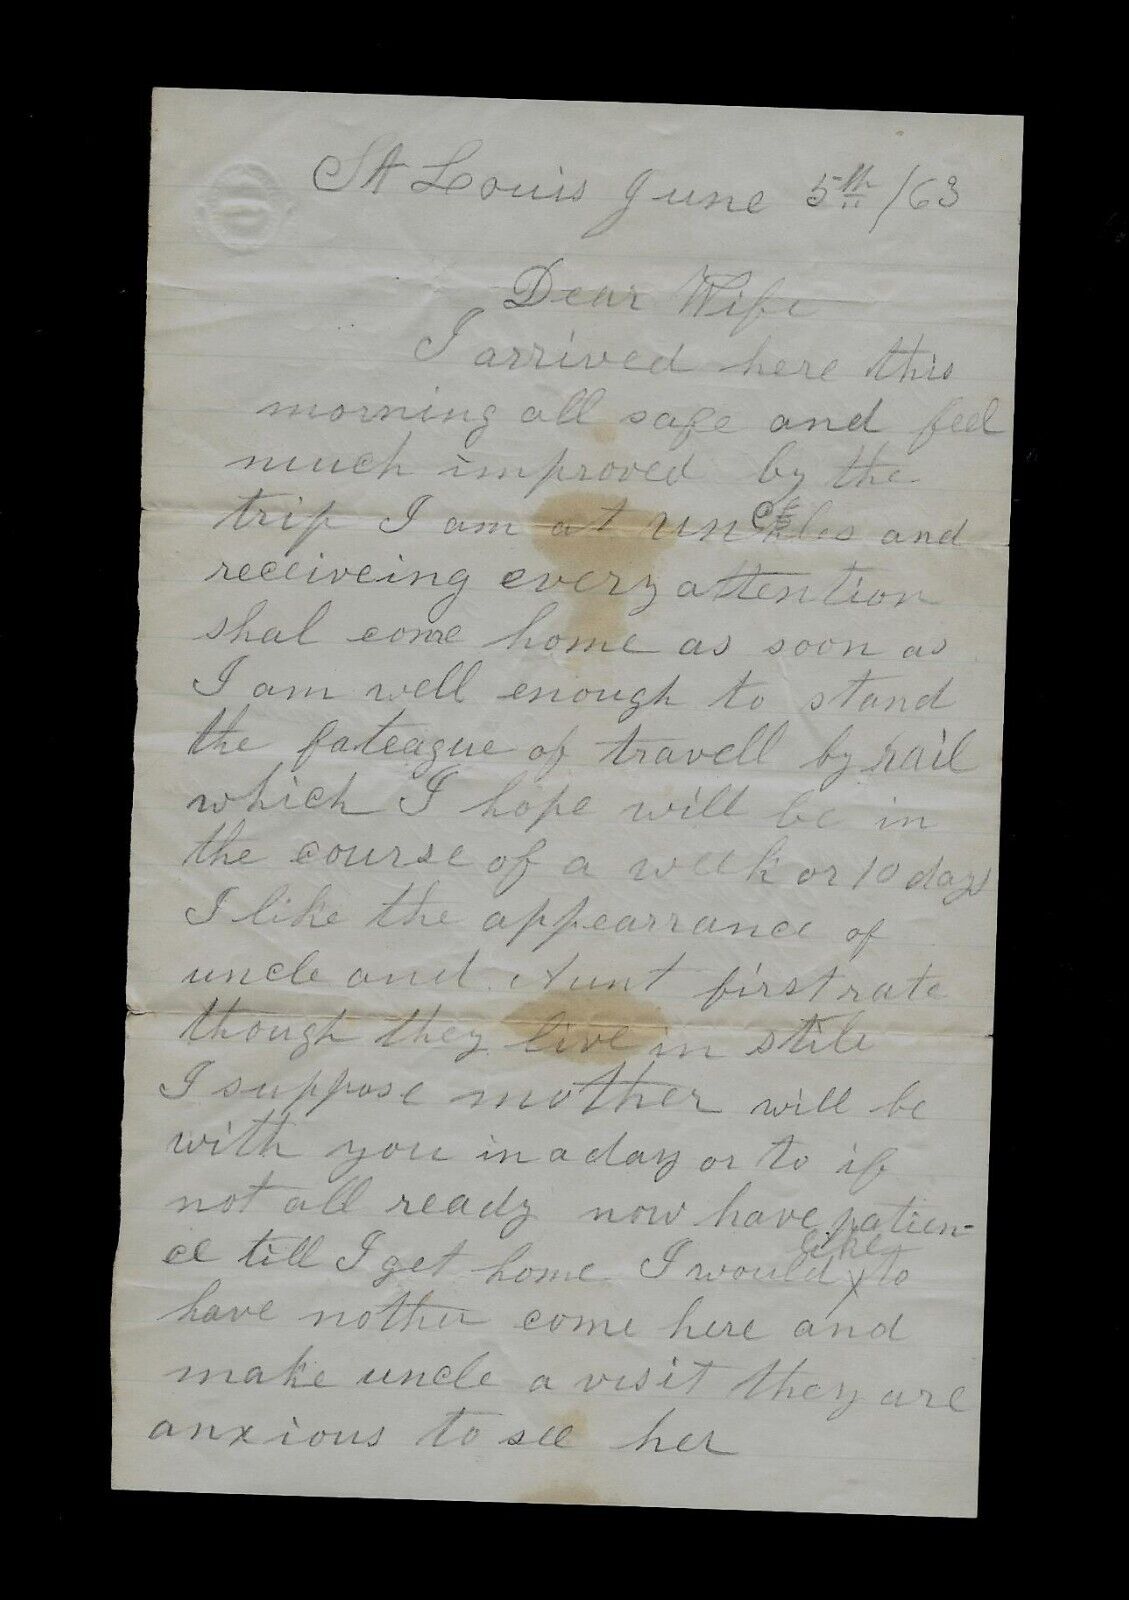 St Louis June 5th /63
Dear Wife
I arrived here this
morning all safe and feel
much improved by the
trip I am at uncles and
receiveing every attention
shal come home as soon as
I am well enough to stand
the fateague of travell by rail
which I hope will be in
the course of a week or 10 days
I like the appearrance of
uncle and Aunt first rate
though they live in stile
I suppose mother will be
with you in a day or to if
not all ready now have patien-
ce till I get home I would like to
have mother come here and
make uncle a visit they are
anxious to see her